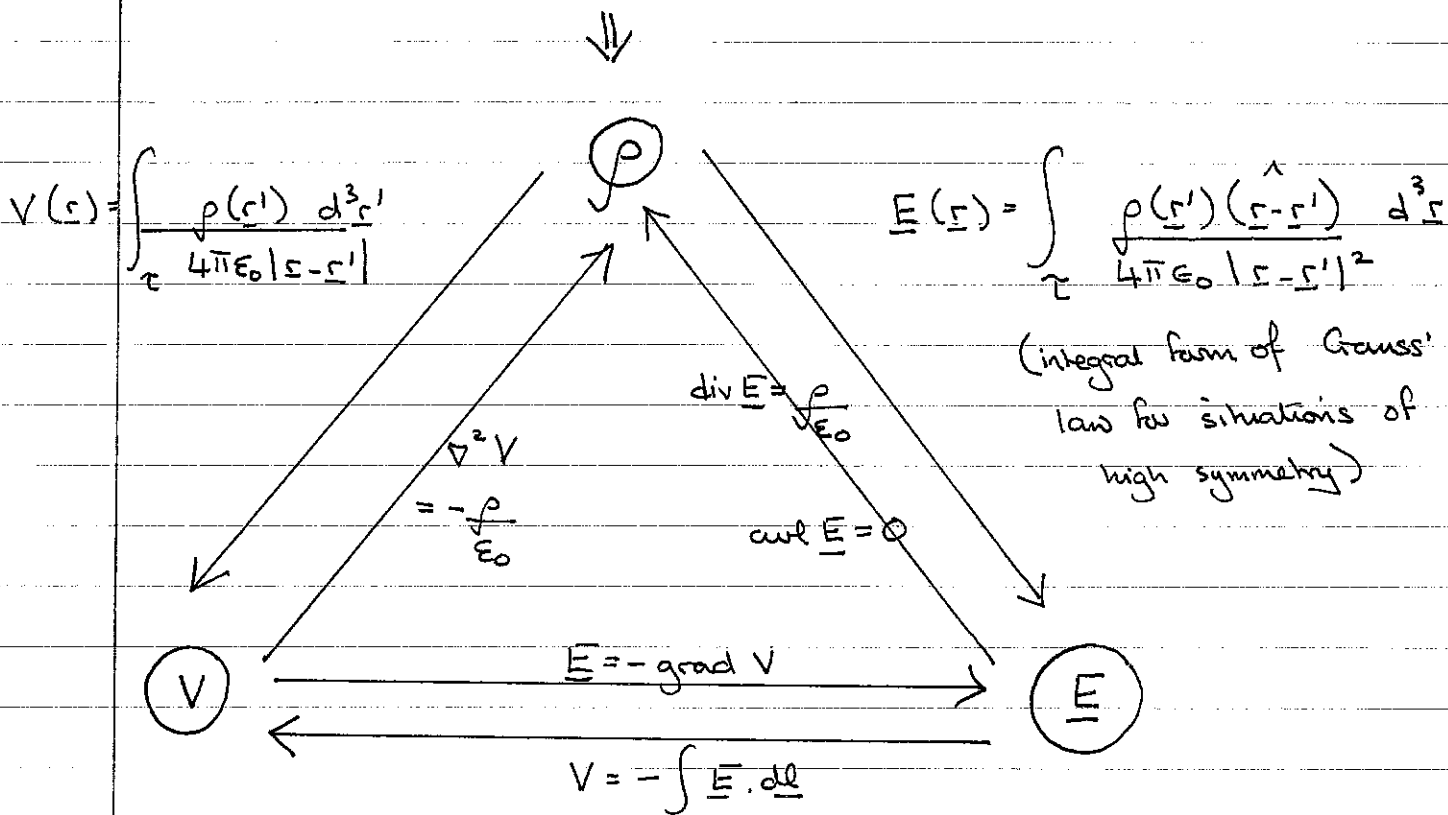 ⇓
ρ
V(r) = ∫_τ ρ(r') d³r' / 4πε₀|r-r'|
E(r) = ∫_τ ρ(r')(r-r')^ d³r / 4πε₀|r-r'|²
(integral form of Gauss'
law for situations of
high symmetry)
div E = ρ/ε₀
∇²V
= -ρ/ε₀
curl E = 0
V
E = - grad V
E
V = -∫ E . dl